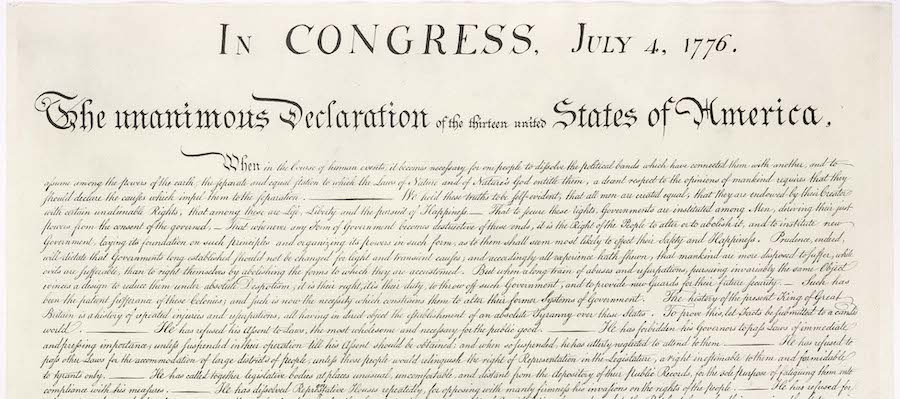 In CONGRESS, July 4, 1776.
The unanimous Declaration of the thirteen united States of America,
When in the Course of human events, it becomes necessary for one people to dissolve the political bands which have connected them with another, and to
assume among the powers of the earth, the separate and equal station to which the Laws of Nature and of Nature's God entitle them, a decent respect to the opinions of mankind requires that they
should declare the causes which impel them to the separation. — We hold these truths to be self-evident, that all men are created equal, that they are endowed by their Creator
with certain unalienable Rights, that among these are Life, Liberty and the pursuit of Happiness.— That to secure these rights, Governments are instituted among Men, deriving their just
powers from the consent of the governed,— That whenever any Form of Government becomes destructive of these ends, it is the Right of the People to alter or to abolish it, and to institute new
Government, laying its foundation on such principles and organizing its powers in such form, as to them shall seem most likely to effect their Safety and Happiness. Prudence, indeed,
will dictate that Governments long established should not be changed for light and transient causes; and accordingly all experience hath shewn, that mankind are more disposed to suffer, while
evils are sufferable, than to right themselves by abolishing the forms to which they are accustomed. But when a long train of abuses and usurpations, pursuing invariably the same Object
evinces a design to reduce them under absolute Despotism, it is their right, it is their duty, to throw off such Government, and to provide new Guards for their future security.— Such has
been the patient sufferance of these Colonies; and such is now the necessity which constrains them to alter their former Systems of Government. The history of the present King of Great
Britain is a history of repeated injuries and usurpations, all having in direct object the establishment of an absolute Tyranny over these States. To prove this, let Facts be submitted to a candid
world. — He has refused his Assent to Laws, the most wholesome and necessary for the public good. — He has forbidden his Governors to pass Laws of immediate
and pressing importance, unless suspended in their operation till his Assent should be obtained; and when so suspended, he has utterly neglected to attend to them. — He has refused to
pass other Laws for the accommodation of large districts of people, unless those people would relinquish the right of Representation in the Legislature, a right inestimable to them and formidable
to tyrants only. — He has called together legislative bodies at places unusual, uncomfortable, and distant from the depository of their Public Records, for the sole purpose of fatiguing them into
compliance with his measures. — He has dissolved Representative Houses repeatedly, for opposing with manly firmness his invasions on the rights of the people. — He has refused for